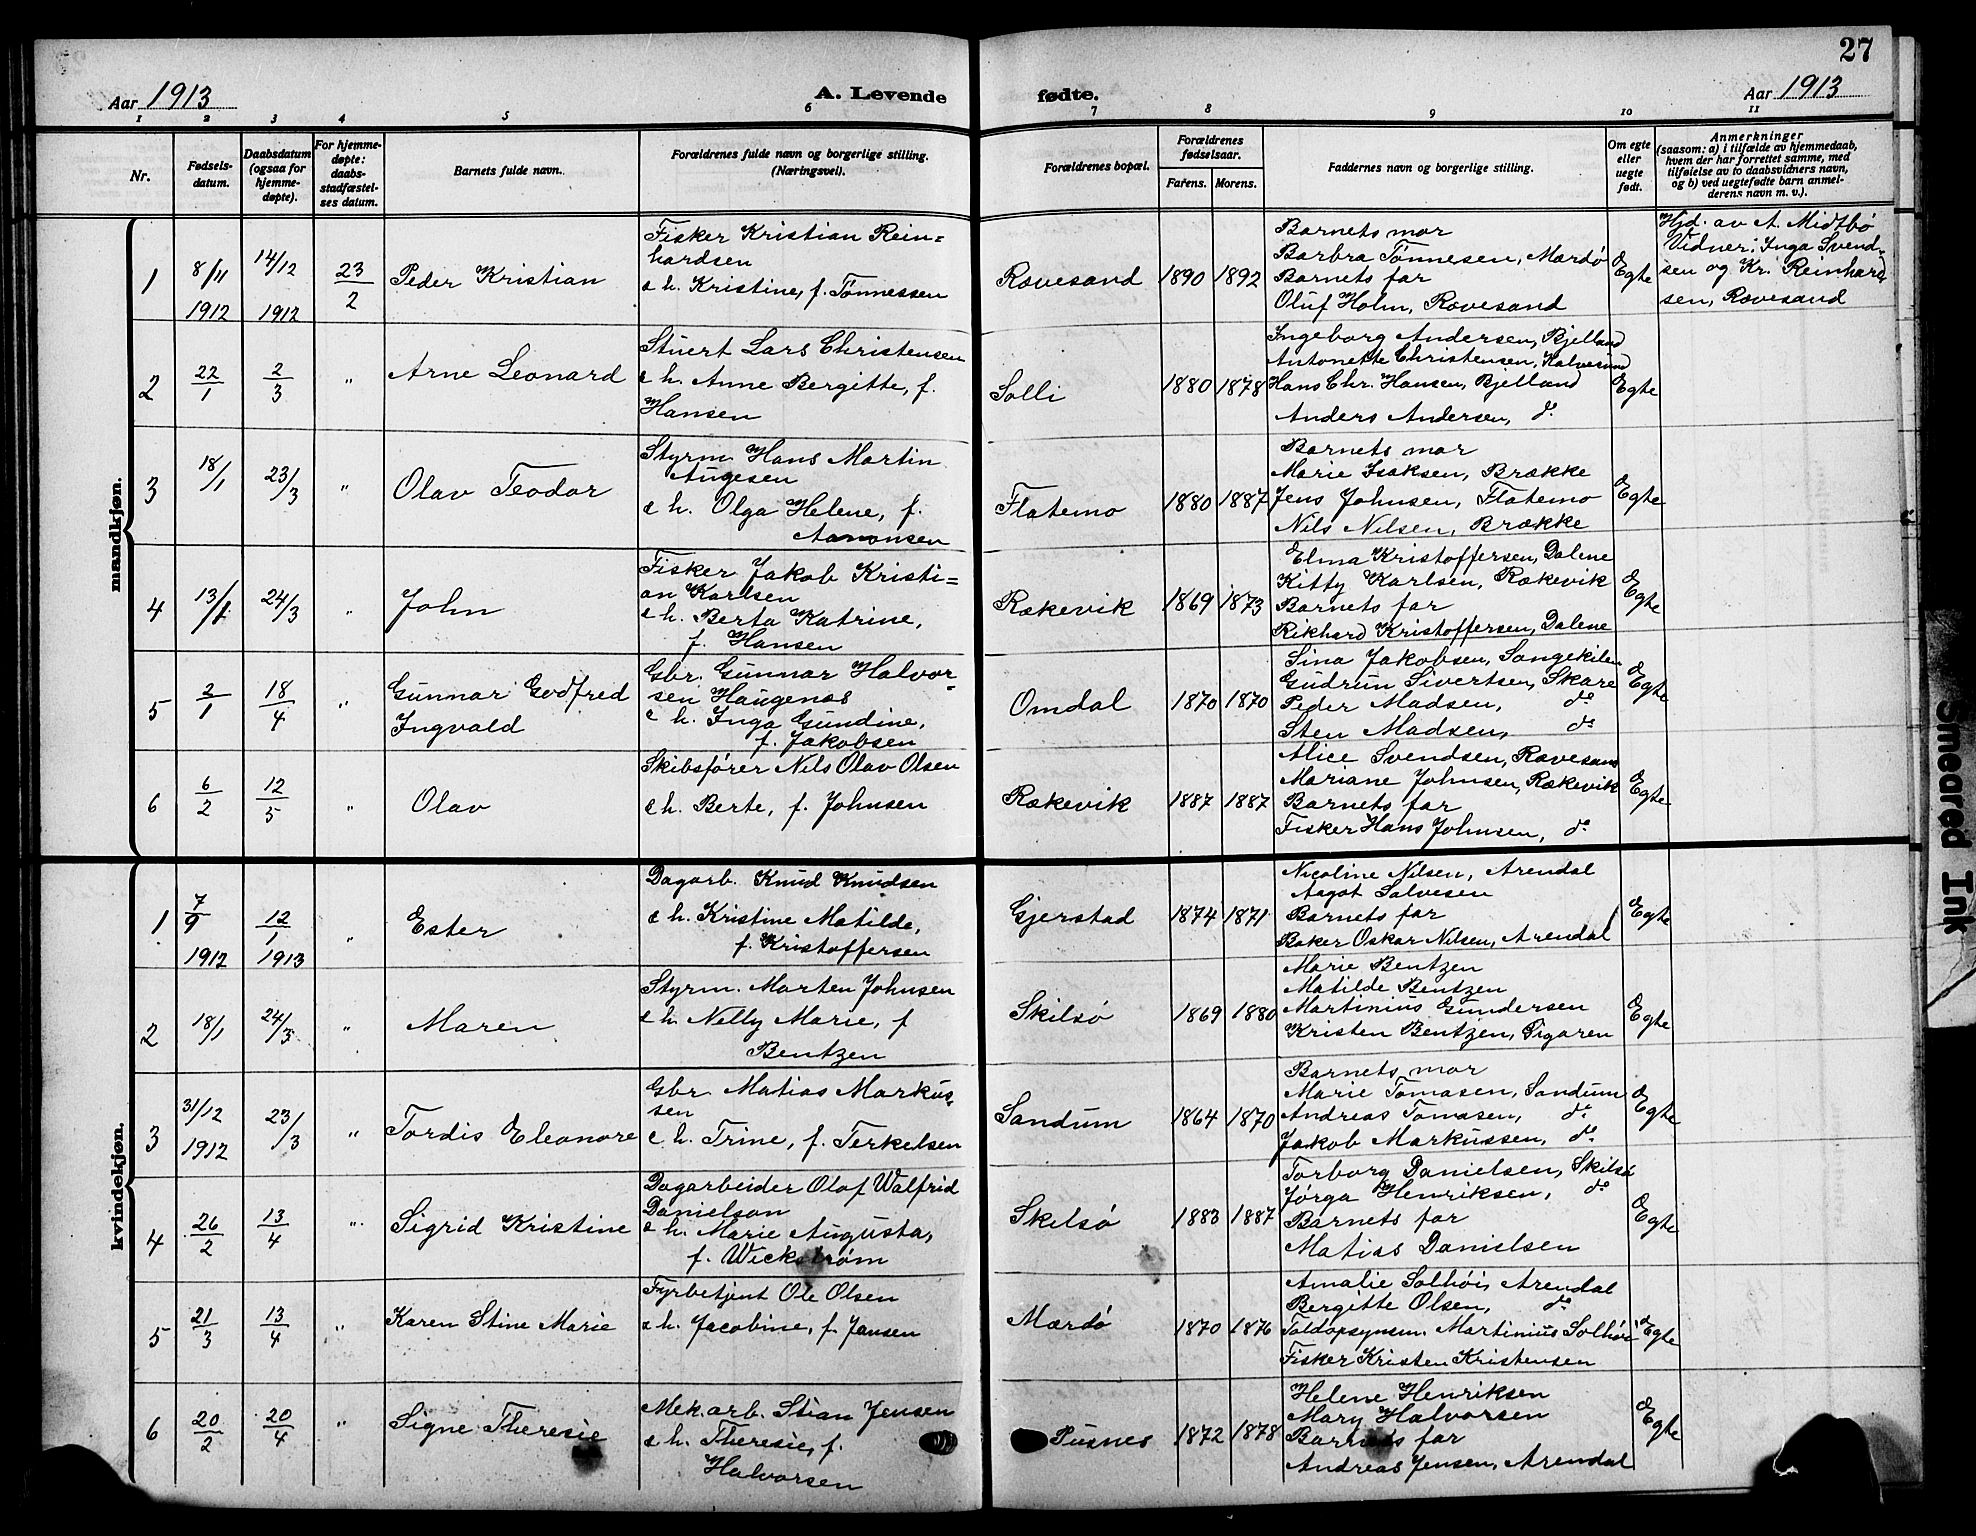 27
Aar 1913
A. Levende
fødte.
Aar 1913
1 2 3 4 5 6 7 8 9 10 11
Nr.
Fødsels-
datum.
Daabsdatum
(ogsaa for
hjemme-
døpte).
For hjemme-
døpte:
daabs-
stadfæstel-
ses datum.
Barnets fulde navn.
Forældrenes fulde navn og borgerlige stilling.
(Næringsvei).
Forældrenes bopæl.
Forældrenes
fødselsaar.
Farens. Morens.
Faddernes navn og borgerlige stilling.
Om egte
eller
uegte
født.
Anmerkninger
(saasom: a) i tilfælde av hjemmedaab,
hvem der har forrettet samme, med
tilføielse av to daabsvidners navn,
og b) ved uegtefødte barn anmel-
derens navn m. v.).
mandkjøn.
1
8/11
1912
14/12
1912
23/2
Peder Kristian
Fisker Kristian Rein=
hardsen
& h. Kristine, f. Tønnessen
Rævesand
1890 1892
Barnets mor
Barbra Tønnesen, Mærdø
Barnets far
Oluf Holm, Rævesand
Egte
Hjd. av A. Midtbø
Vidner: Inga Svend-
sen og Kr. Reinhard
sen, Rævesand
2
22/1
2/3
"
Arne Leonard
Stuert Lars Christensen
& h. Anne Bergitte, f.
Hansen
Solli
1880 1878
Ingeborg Andersen, Bjelland
Antonette Christensen, Halvesund
Hans Chr. Hansen, Bjelland
Anders Andersen, do
Egte
3
18/1
23/3
"
Olav Teodor
Styrm. Hans Martin
Augesen
& h. Olga Helene, f.
Aanonsen
Flatemo
1880 1887
Barnets mor
Marie Isaksen, Brække
Jens Johnsen, Flatemo
Nils Nilsen, Brække
Egte
4
13/1
24/3
"
John
Fisker Jakob Kristi=
an Karlsen
& h. Berta Katrine,
f. Hansen
Rækevik
1869 1873
Elma Kristoffersen, Dalene
Kitty Karlsen, Rækevik
Barnets far
Rikhard Kristoffersen, Dalene
Egte
5
2/1
18/4
"
Gunnar Godfred
Ingvald
Gbr. Gunnar Halvor-
sen Haugenæs
& h. Inga Gundine,
f. Jakobsen
Omdal
1870 1870
Sina Jakobsen, Songekilen
Gudrun Sivertsen, Skare
Peder Madsen, do
Sten Madsen, do
Egte
6
6/2
12/5
"
Olav
Skibsfører Nils Olav Olsen
& h. Berte, f. Johnsen
Rækevik
1887 1887
Alice Svendsen, Rævesand
Mariane Johnsen, Rækevik
Barnets far
Fisker Hans Johnsen, do
Egte
kvindekjøn.
1
7/9
1912
12/1
1913
"
Ester
Dagarb. Knud Knudsen
& h. Kristine Matilde,
f. Kristoffersen
Gjerstad
1874 1871
Nicoline Nilsen, Arendal
Aagot Salvesen
Barnets far
Baker Oskar Nilsen, Arendal
Egte
2
18/1
24/3
"
Maren
Styrm. Morten Johnsen
& h. Nelly Marie, f
Bentzen
Skilsø
1869 1880
Marie Bentzen
Matilde Bentzen
Martinius Gundersen
Kristen Bentzen, Tigaren
Egte
3
31/12
1912
23/3
"
Tordis Eleonore
Gbr Matias Markus-
sen
& h. Trine, f. Terkelsen
Sandum
1864 1870
Barnets mor
Marie Tomasen, Sandum
Andreas Tomasen, do
Jakob Markussen, do
Egte
4
26/2
13/4
"
Sigrid Kristine
Dagarbeider Olof Walfrid
Danielson
& h. Marie Augusta,
f. Wickstrøm
Skilsø
1883 1887
Torborg Danielsen, Skilsø
Jørga Henriksen, do
Barnets far
Matias Danielsen
Egte
5
21/3
13/4
"
Karen Stine Marie
Fyrbetjent Ole Olsen
& h. Jacobine, f. Jansen
Mærdø
1870 1876
Amalie Solhøi, Arendal
Bergitte Olsen, do
Toldopsynsm. Martinius Solhøi
Fisker Kristen Kristensen
Egte
6
20/2
20/4
"
Signe Theresie
Mek. arb. Stian Jensen
& h. Theresie, f.
Halvorsen
Pusnes
1872 1878
Helene Henriksen
Mary Halvorsen
Barnets far
Andreas Jensen, Arendal
Egte
Smeared Ink